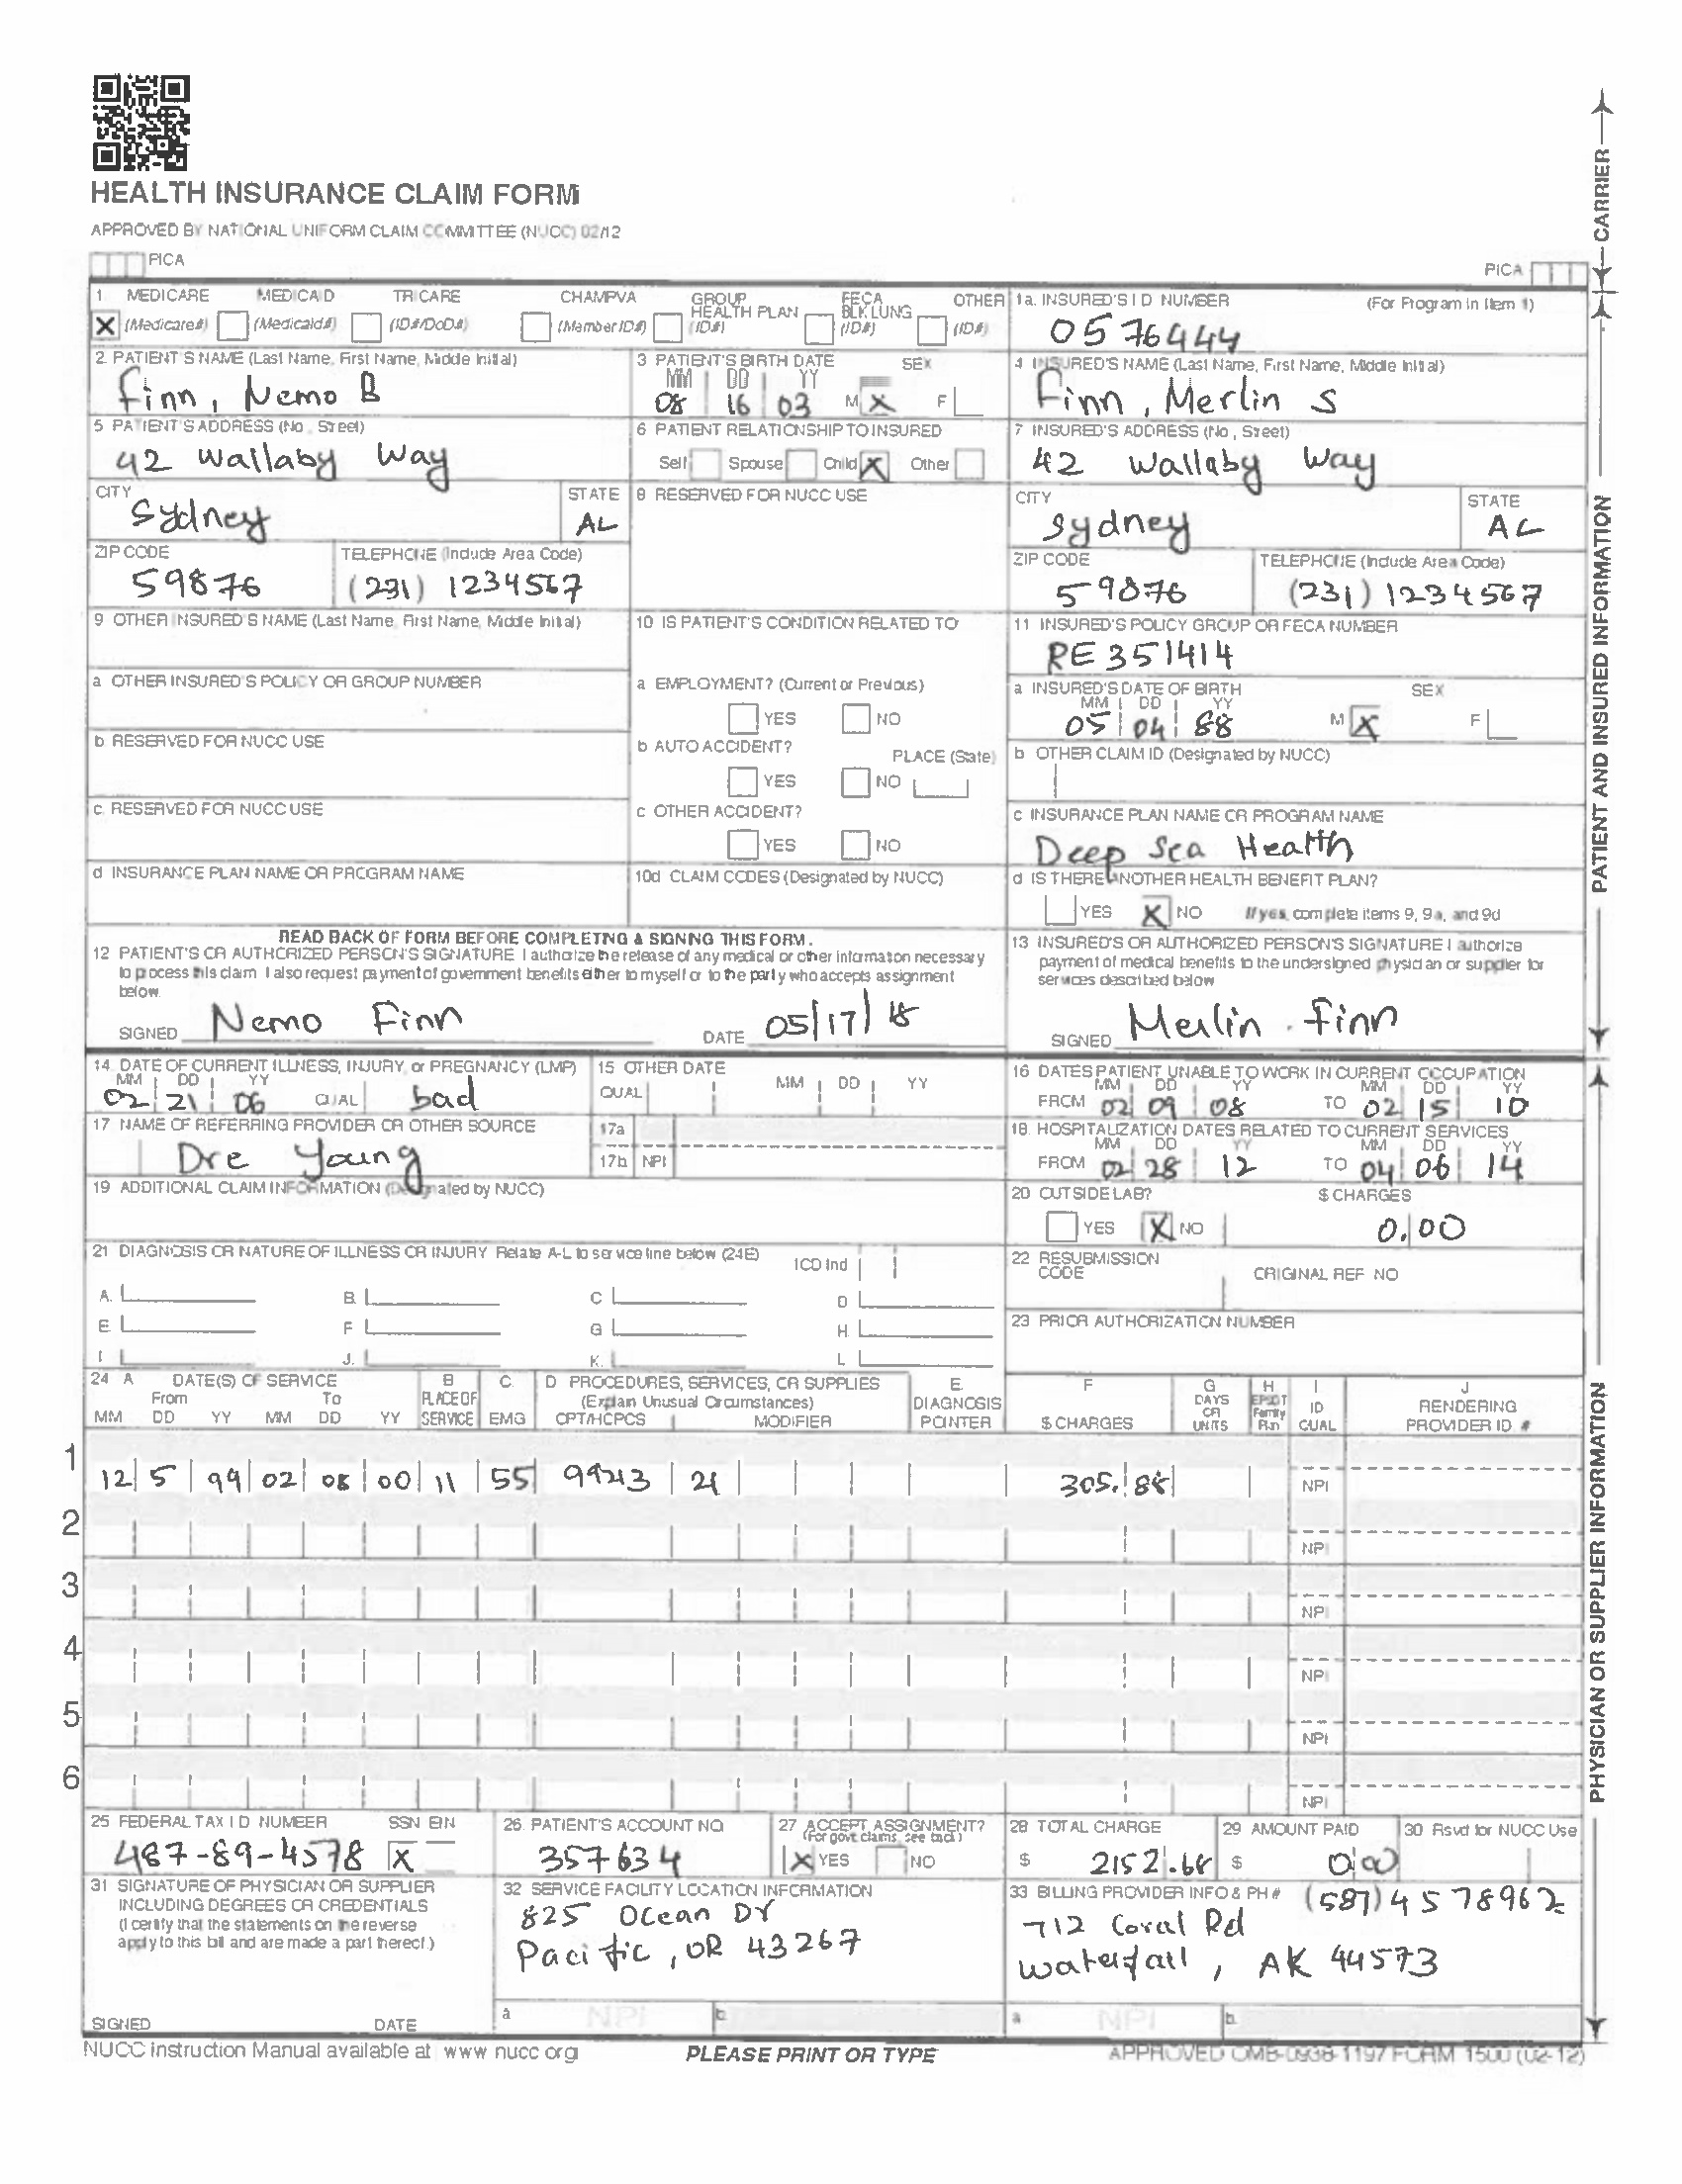 HEALTH INSURANCE CLAIM FORM
APPROVED BY NATIONAL UNIFORM CLAIM COMMITTEE (NUCC) 02/12
PICA
PICA
CARRIER
1 MEDICARE MEDICAID TRICARE CHAMPVA GROUP HEALTH PLAN FECA BLK LUNG OTHER
X (Medicare#) (Medicaid#) (ID#/DoD#) (Member ID#) (ID#) (ID#) (ID#)
1a. INSURED'S I D NUMBER (For Program in Item 1)
0576444
2. PATIENT'S NAME (Last Name, First Name, Middle Initial)
Finn, Nemo B
3 PATIENT'S BIRTH DATE SEX
MM DD YY
08 16 03 M X F
4 INSURED'S NAME (Last Name, First Name, Middle Initial)
Finn, Merlin S
5 PATIENT'S ADDRESS (No., Street)
42 Wallaby Way
6 PATIENT RELATIONSHIP TO INSURED
Self Spouse Child X Other
7 INSURED'S ADDRESS (No, Street)
42 Wallaby Way
CITY STATE
Sydney AL
8 RESERVED FOR NUCC USE
CITY STATE
Sydney AL
ZIP CODE TELEPHONE (Include Area Code)
59876 (231) 1234567
ZIP CODE TELEPHONE (Include Area Code)
59876 (231) 1234567
9 OTHER INSURED'S NAME (Last Name, First Name, Middle Initial)
10 IS PATIENT'S CONDITION RELATED TO
11 INSURED'S POLICY GROUP OR FECA NUMBER
RE 351414
a OTHER INSURED'S POLICY OR GROUP NUMBER
a EMPLOYMENT? (Current or Previous)
YES NO
a INSURED'S DATE OF BIRTH SEX
MM DD YY
05 04 88 M X F
b RESERVED FOR NUCC USE
b AUTO ACCIDENT? PLACE (State)
YES NO
b OTHER CLAIM ID (Designated by NUCC)
c. RESERVED FOR NUCC USE
c OTHER ACCIDENT?
YES NO
c INSURANCE PLAN NAME OR PROGRAM NAME
Deep Sea Health
d INSURANCE PLAN NAME OR PROGRAM NAME
10d CLAIM CODES (Designated by NUCC)
d IS THERE ANOTHER HEALTH BENEFIT PLAN?
YES X NO If yes, complete items 9, 9a, and 9d
PATIENT AND INSURED INFORMATION
READ BACK OF FORM BEFORE COMPLETING & SIGNING THIS FORM.
12 PATIENT'S OR AUTHORIZED PERSON'S SIGNATURE I authorize the release of any medical or other information necessary
to process this claim I also request payment of government benefits either to myself or to the party who accepts assignment
below.
SIGNED Nemo Finn DATE 05/17/18
13 INSURED'S OR AUTHORIZED PERSON'S SIGNATURE I authorize
payment of medical benefits to the undersigned physician or supplier for
services described below
SIGNED Merlin Finn
14. DATE OF CURRENT ILLNESS, INJURY, or PREGNANCY (LMP)
MM DD YY
02 21 06 QUAL bad
15 OTHER DATE
QUAL MM DD YY
16 DATES PATIENT UNABLE TO WORK IN CURRENT OCCUPATION
MM DD YY MM DD YY
FROM 02 09 08 TO 02 15 10
17 NAME OF REFERRING PROVIDER OR OTHER SOURCE
Dre Young
17a
17b NPI
18. HOSPITALIZATION DATES RELATED TO CURRENT SERVICES
MM DD YY MM DD YY
FROM 02 28 12 TO 04 06 14
19 ADDITIONAL CLAIM INFORMATION (Designated by NUCC)
20 OUTSIDE LAB? $ CHARGES
YES X NO 0.00
21 DIAGNOSIS OR NATURE OF ILLNESS OR INJURY Relate A-L to service line below (24E) ICD Ind
A. B. C D
E F G H.
I. J. K. L
22 RESUBMISSION CODE ORIGINAL REF NO
23 PRIOR AUTHORIZATION NUMBER
24 A DATE(S) OF SERVICE B C. D PROCEDURES, SERVICES, OR SUPPLIES E. F G H I J
From To PLACE OF (Explain Unusual Circumstances) DIAGNOSIS DAYS OR UNITS EPSDT Family Plan ID QUAL RENDERING
MM DD YY MM DD YY SERVICE EMG CPT/HCPCS MODIFIER POINTER $ CHARGES PROVIDER ID #
1 12 5 99 02 08 00 11 55 99213 21 305. 88 NPI
2 NPI
3 NPI
4 NPI
5 NPI
6 NPI
PHYSICIAN OR SUPPLIER INFORMATION
25 FEDERAL TAX I D NUMBER SSN EIN
487-89-4578 X
26. PATIENT'S ACCOUNT NO.
357634
27 ACCEPT ASSIGNMENT?
(For govt. claims, see back)
X YES NO
28 TOTAL CHARGE
$ 2152.68
29 AMOUNT PAID
$ 0 00
30 Rsvd for NUCC Use
31 SIGNATURE OF PHYSICIAN OR SUPPLIER
INCLUDING DEGREES OR CREDENTIALS
(I certify that the statements on the reverse
apply to this bill and are made a part thereof.)
SIGNED DATE
32 SERVICE FACILITY LOCATION INFORMATION
825 Ocean Dr
Pacific, OR 43267
a NPI b.
33 BILLING PROVIDER INFO & PH # (587) 4578962
712 Coral Rd
Waterfall, AK 44573
a NPI b.
NUCC Instruction Manual available at www nucc org
PLEASE PRINT OR TYPE
APPROVED OMB-0938-1197 FORM 1500 (02-12)